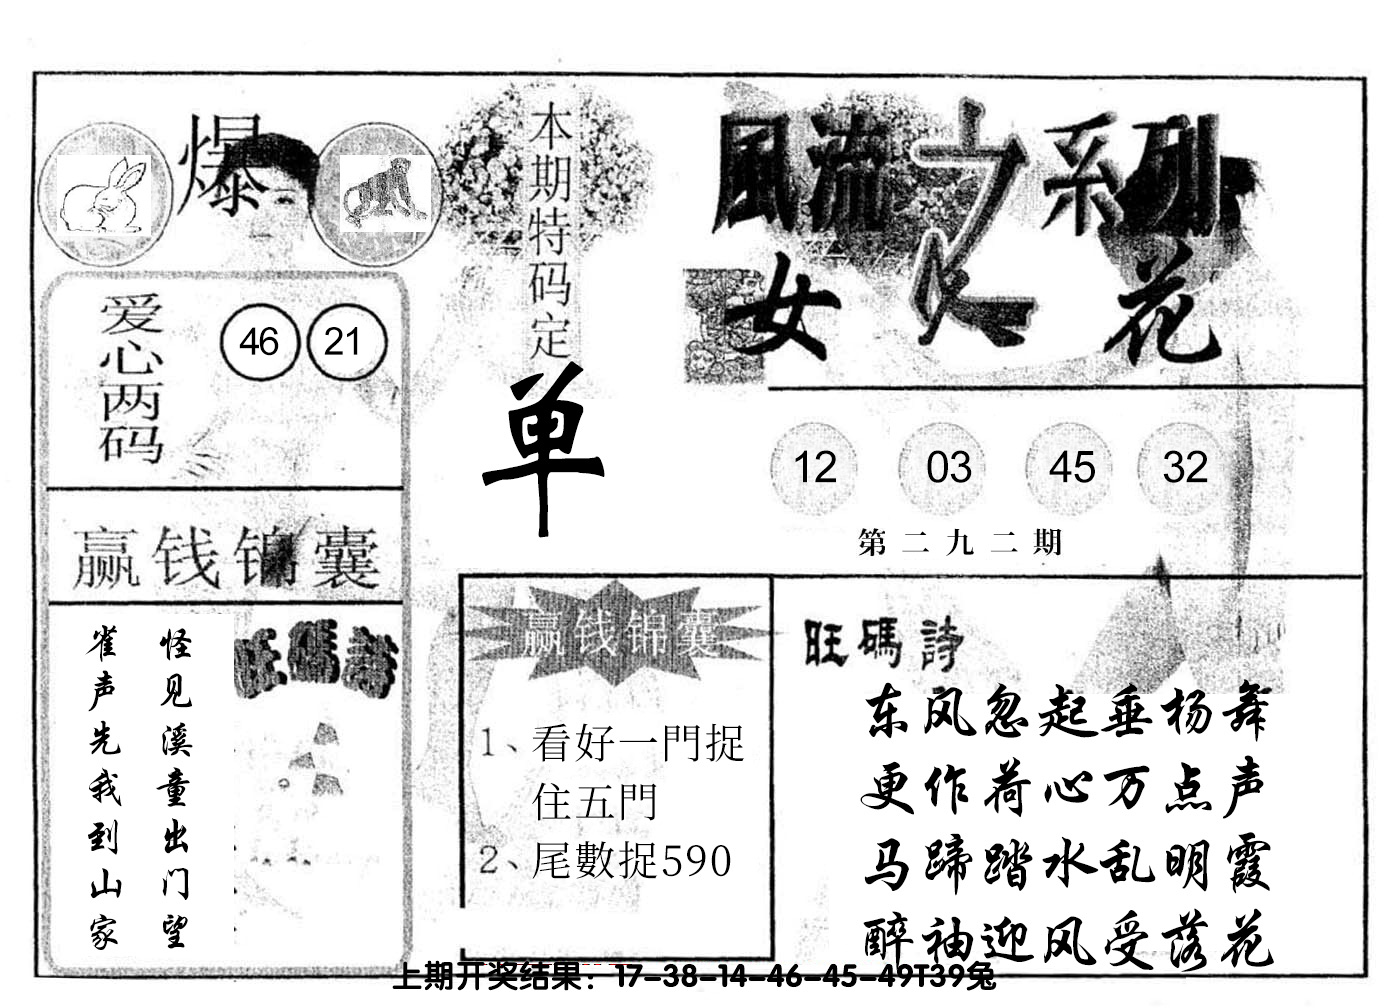 爆
本期特码定
单
風流之系列
女人花
爱心两码
46 21
12 03 45 32
第二九二期
赢钱锦囊
旺碼詩
怪见溪童出门望
雀声先我到山家
赢钱锦囊
1、看好一門捉
住五門
2、尾數捉590
旺碼詩
东风忽起垂杨舞
更作荷心万点声
马蹄踏水乱明霞
醉袖迎风受落花
上期开奖结果：17-38-14-46-45-49T39兔